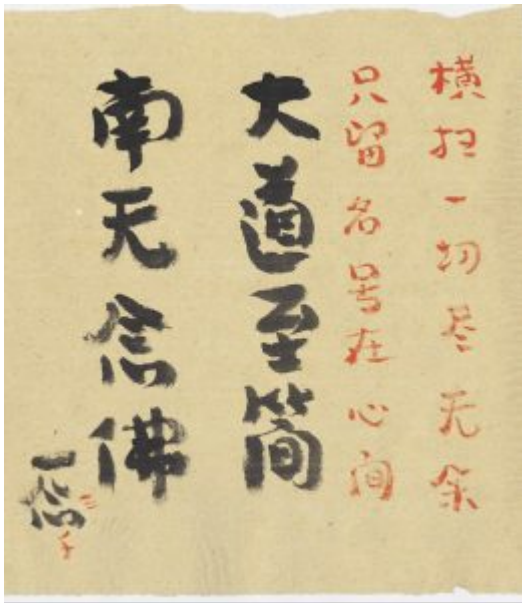 横扫一切尽无余
只留名号在心间
大道至简
南无念佛
一念三千